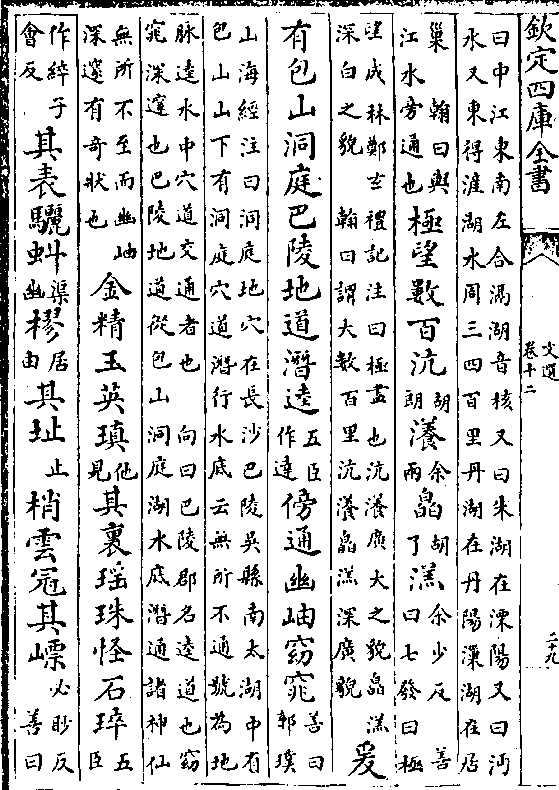 欽定四庫全書
文選
卷十二
二十九
曰中江東南左合滆湖音核又曰朱湖在溧陽又曰沔
水又東得滆湖水周三四百里丹湖在丹陽瀷湖在居
巢 翰曰與江水旁通也極望數百沆胡朗瀁余兩皛胡了溔余少反 善曰七發曰極
望成林鄭玄禮記注曰極盡也沆瀁廣大之貌皛溔
深白之貌 翰曰謂大數百里沆瀁皛溔深廣貌 爰
有包山洞庭巴陵地道潛逵五臣作達傍通幽岫窈窕善曰郭璞
山海經注曰洞庭地穴在長沙巴陵吳縣南太湖中有
包山山下有洞庭穴道潛行水底云無所不通號為地
脉逵水中穴道交通者也 向曰巴陵郡名逵道也窈
窕深邃也巴陵地道從包山洞庭湖水底潛通諸神仙
無所不至而幽岫深邃有奇狀也 金精玉英瑱他見其裏瑶珠怪石琗五臣
作綷子會反 其表驪虬渠幽樛居由其址止梢雲冠其嶛必眇反 善曰